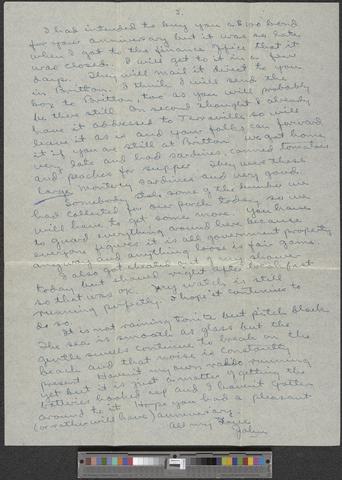 3.
I had intended to buy you a $100 bond
for your anniversary but it was so late
when I got to the finance office that it
was closed. I will get to it in a few
days. They will mail it direct to you
in Britton. I think I will send the
box to Britton too as you will probably
be there still. On second thought I already
have it addressed to Terraville so will
leave it as is and your folks can forward
it if you are still at Britton. We got home
very late and had sardines, canned tomatoes
and peaches for supper. They were these
large Monterey sardines and very good.
Somebody stole some of the lumber we
had collected for our porch today so we
will have to get some more. You have
to guard everything around here because
everyone figures it is all government property
anyway and anything loose is fair game.
I also got cheated out of my shower
today but shaved right after breakfast
so that was OK. My watch is still
running perfectly. I hope it continues to
do so.
It is not raining tonite but pitch black.
The sea is smooth as glass but the
gentle swells continue to break on the
beach and that noise is constantly
present. Haven't my own radio running
yet but it is just a matter of getting the
batteries hooked up and I haven't gotten
around to it. Hope you had a pleasant
(or rather will have) anniversary.
All my love
John